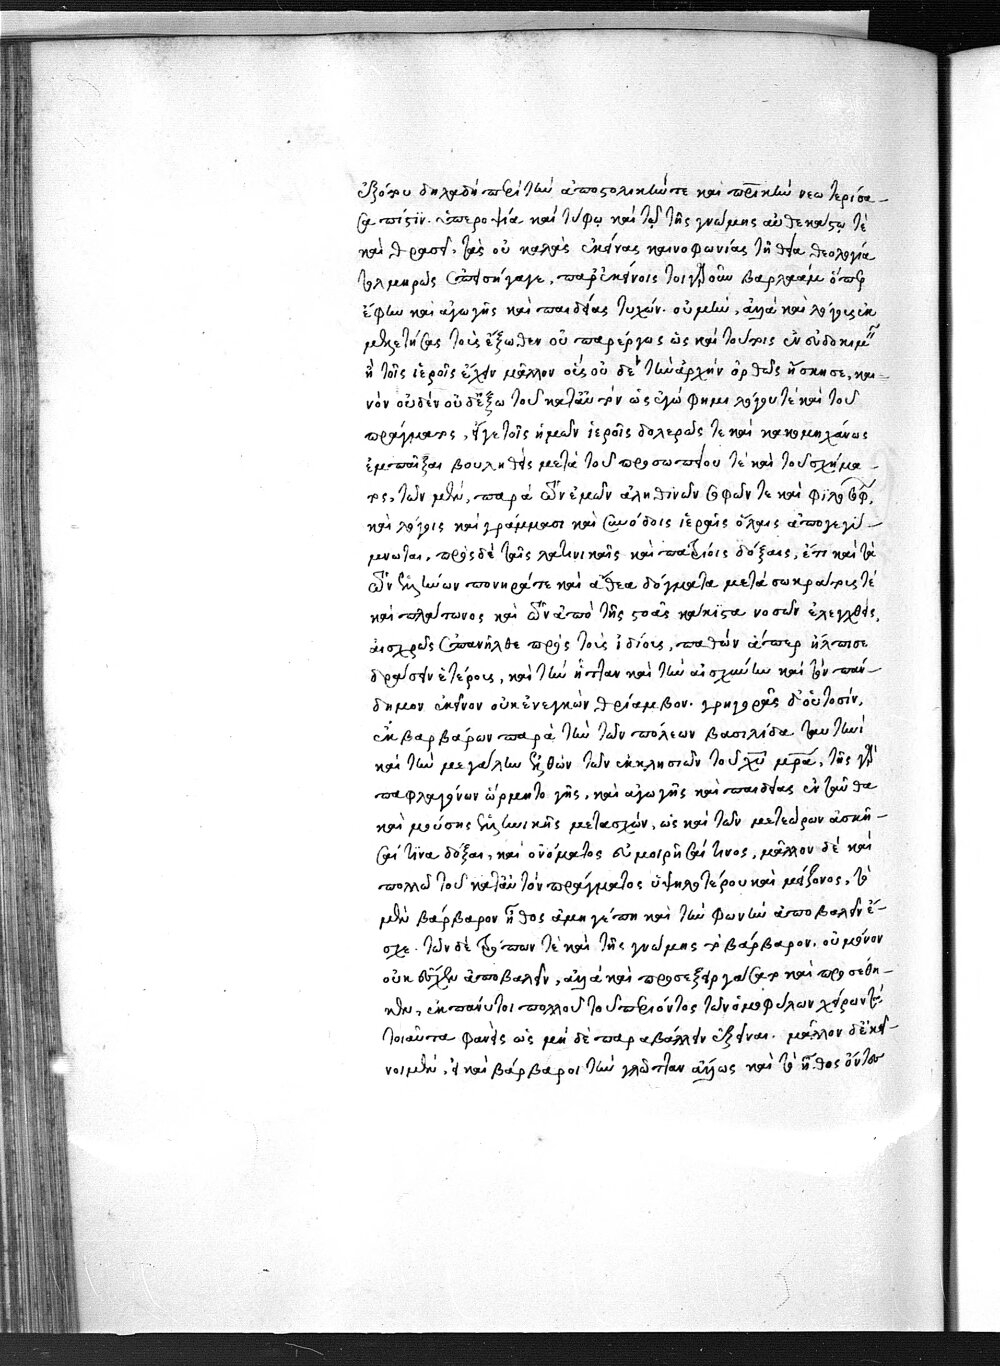 ἐξότου δηλαδὴ περὶ τὴν ἀποστολικήντε καὶ πρικὴν νεωτερίσα-
σα πίστιν. ὑπεροψία καὶ τύφῳ καὶ τῷ τῆς γνώμης αὐθεκάστῳ τὲ
καὶ θρασεῖ, τὰς οὐ καλὰς ἐκείνας καινοφωνίας τῆ θεία θεολογία
τολμηρῶς ἐπεισήγαγε, παρ' ἐκείνοις τοιγαροῦν βαρλαὰμ ὅπερ
ἔφην καὶ ἀγωγῆς καὶ παιδείας τυχών. οὐμὴν, ἀλλὰ καὶ λόγοις ἐκ
μελετήσας τοὺς ἔξωθεν οὐ παρέργως ὡς καὶ τούτοις ἐνευδοκιμεῖν
ἢ τοῖς ἱεροῖς ἔχειν μᾶλλον οἷς οὐ δὲ τὴν ἀρχὴν ὀρθῶς ἤσκησε, και-
νὸν οὐδὲν οὐδ' ἔξω τοῦ κατ' αὐτὸν ὡς ἐγώ φημι λόγου τὲ καὶ τοῦ
πράγματος, εἴγε τοῖς ἡμῶν ἱεροῖς δολερῶς τε καὶ κακομηχάνως
ἐμπαῖξαι βουληθεὶς μετὰ τοῦ προσωπείου τὲ καὶ τοῦ σχήμα-
τος, τῶν μὲν, παρὰ τῶν ἐμῶν ἀληθινῶν σοφῶν τε καὶ φιλοσόφων,
καὶ λόγοις καὶ γράμμασι καὶ συνόδοις ἱεραῖς ὅλαις ἀπογεγυ-
μνωται, πρὸς δὲ ταῖς λατινικαῖς καὶ πατρίοις δόξαις, ἔτι καὶ τὰ
τῶν ἑλλήνων πονηράτε καὶ ἄθεα δόγματα μετὰ σωκράτους τὲ
καὶ πλάτωνος καὶ τῶν ἀπὸ τῆς στοᾶς κάκιστα νοσῶν ἐλεγχθεὶς,
αἰσχρῶς ἐπανῆλθε πρὸς τοὺς ἰδίους, παθὼν ἅπερ ἤλπισε
δράσειν ἑτέρους, καὶ τὴν ἧτταν καὶ τὴν αἰσχύνην καὶ τὸν παν-
δημον ἐκεῖνον οὐκ ἐνεγκὼν θρίαμβον. γρηγορᾶς δ' οὑτοσὶν,
ἐκ βαρβάρων παρὰ τὴν τῶν πόλεων βασιλίδα ταυτηνὶ
καὶ τὴν μεγάλην ἐλθὼν τῶν ἐκκλησιῶν τοῦ χῦ μρα, τῆς γὰρ
παφλαγόνων ὥρμητο γῆς, καὶ ἀγωγῆς καὶ παιδείας ἐνταῦθα
καὶ μούσης ἑλληνικῆς μετασχὼν, ὡς καὶ τῶν μετεώρων ἀσκῆ-
σαί τινα δόξαι, καὶ ὀνόματος εὐμοιρῆσαί τινος, μᾶλλον δὲ καὶ
πολλῶ τοῦ κατ' αὐτὸν πράγματος ὑψηλοτέρου καὶ μείζονος, τὸ
μὲν βάρβαρον ἦθος ἀμηγέπη καὶ τὴν φωνὴν ἀποβαλεῖν ἔ-
σχε. τῶν δὲ τρόπων τὲ καὶ τῆς γνώμης τὸ βάρβαρον, οὐ μόνον
οὐκ εἶχεν ἀποβαλεῖν, ἀλλὰ καὶ προσεξειργάσατο καὶ προσέθη-
κεν, ἐκ παντοι πολλοῦ τοῦ περιόντος τῶν ὁμοφύλων χείρων τὰ
τοιαῦτα φανεὶς ὡς μὴ δὲ παραβάλλειν ἐξεῖναι. μᾶλλον δ' ἐκεῖ-
νοι μὲν, εἰ καὶ βάρβαροι τὴν γλῶτταν ἄλλως καὶ τὸ ἦθος ὄντες